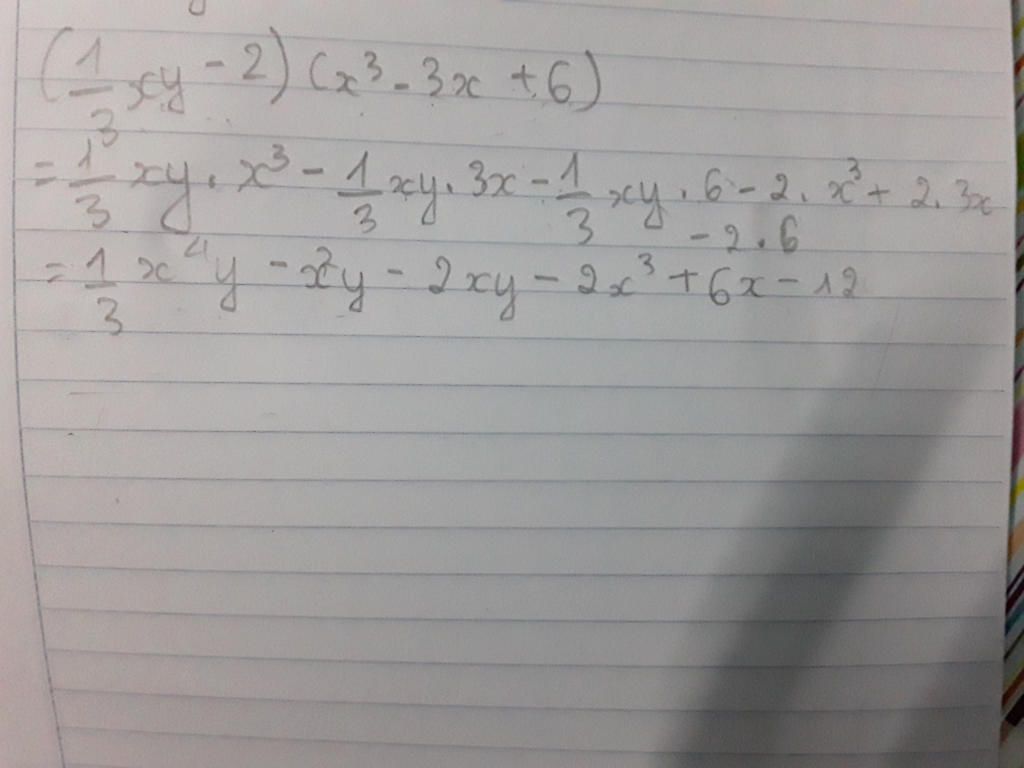 (1/3 xy - 2) (x³ - 3x + 6)
= 1/3 xy . x³ - 1/3 xy . 3x - 1/3 xy . 6 - 2 . x³ + 2 . 3x
- 2 . 6
= 1/3 x⁴y - x²y - 2xy - 2x³ + 6x - 12